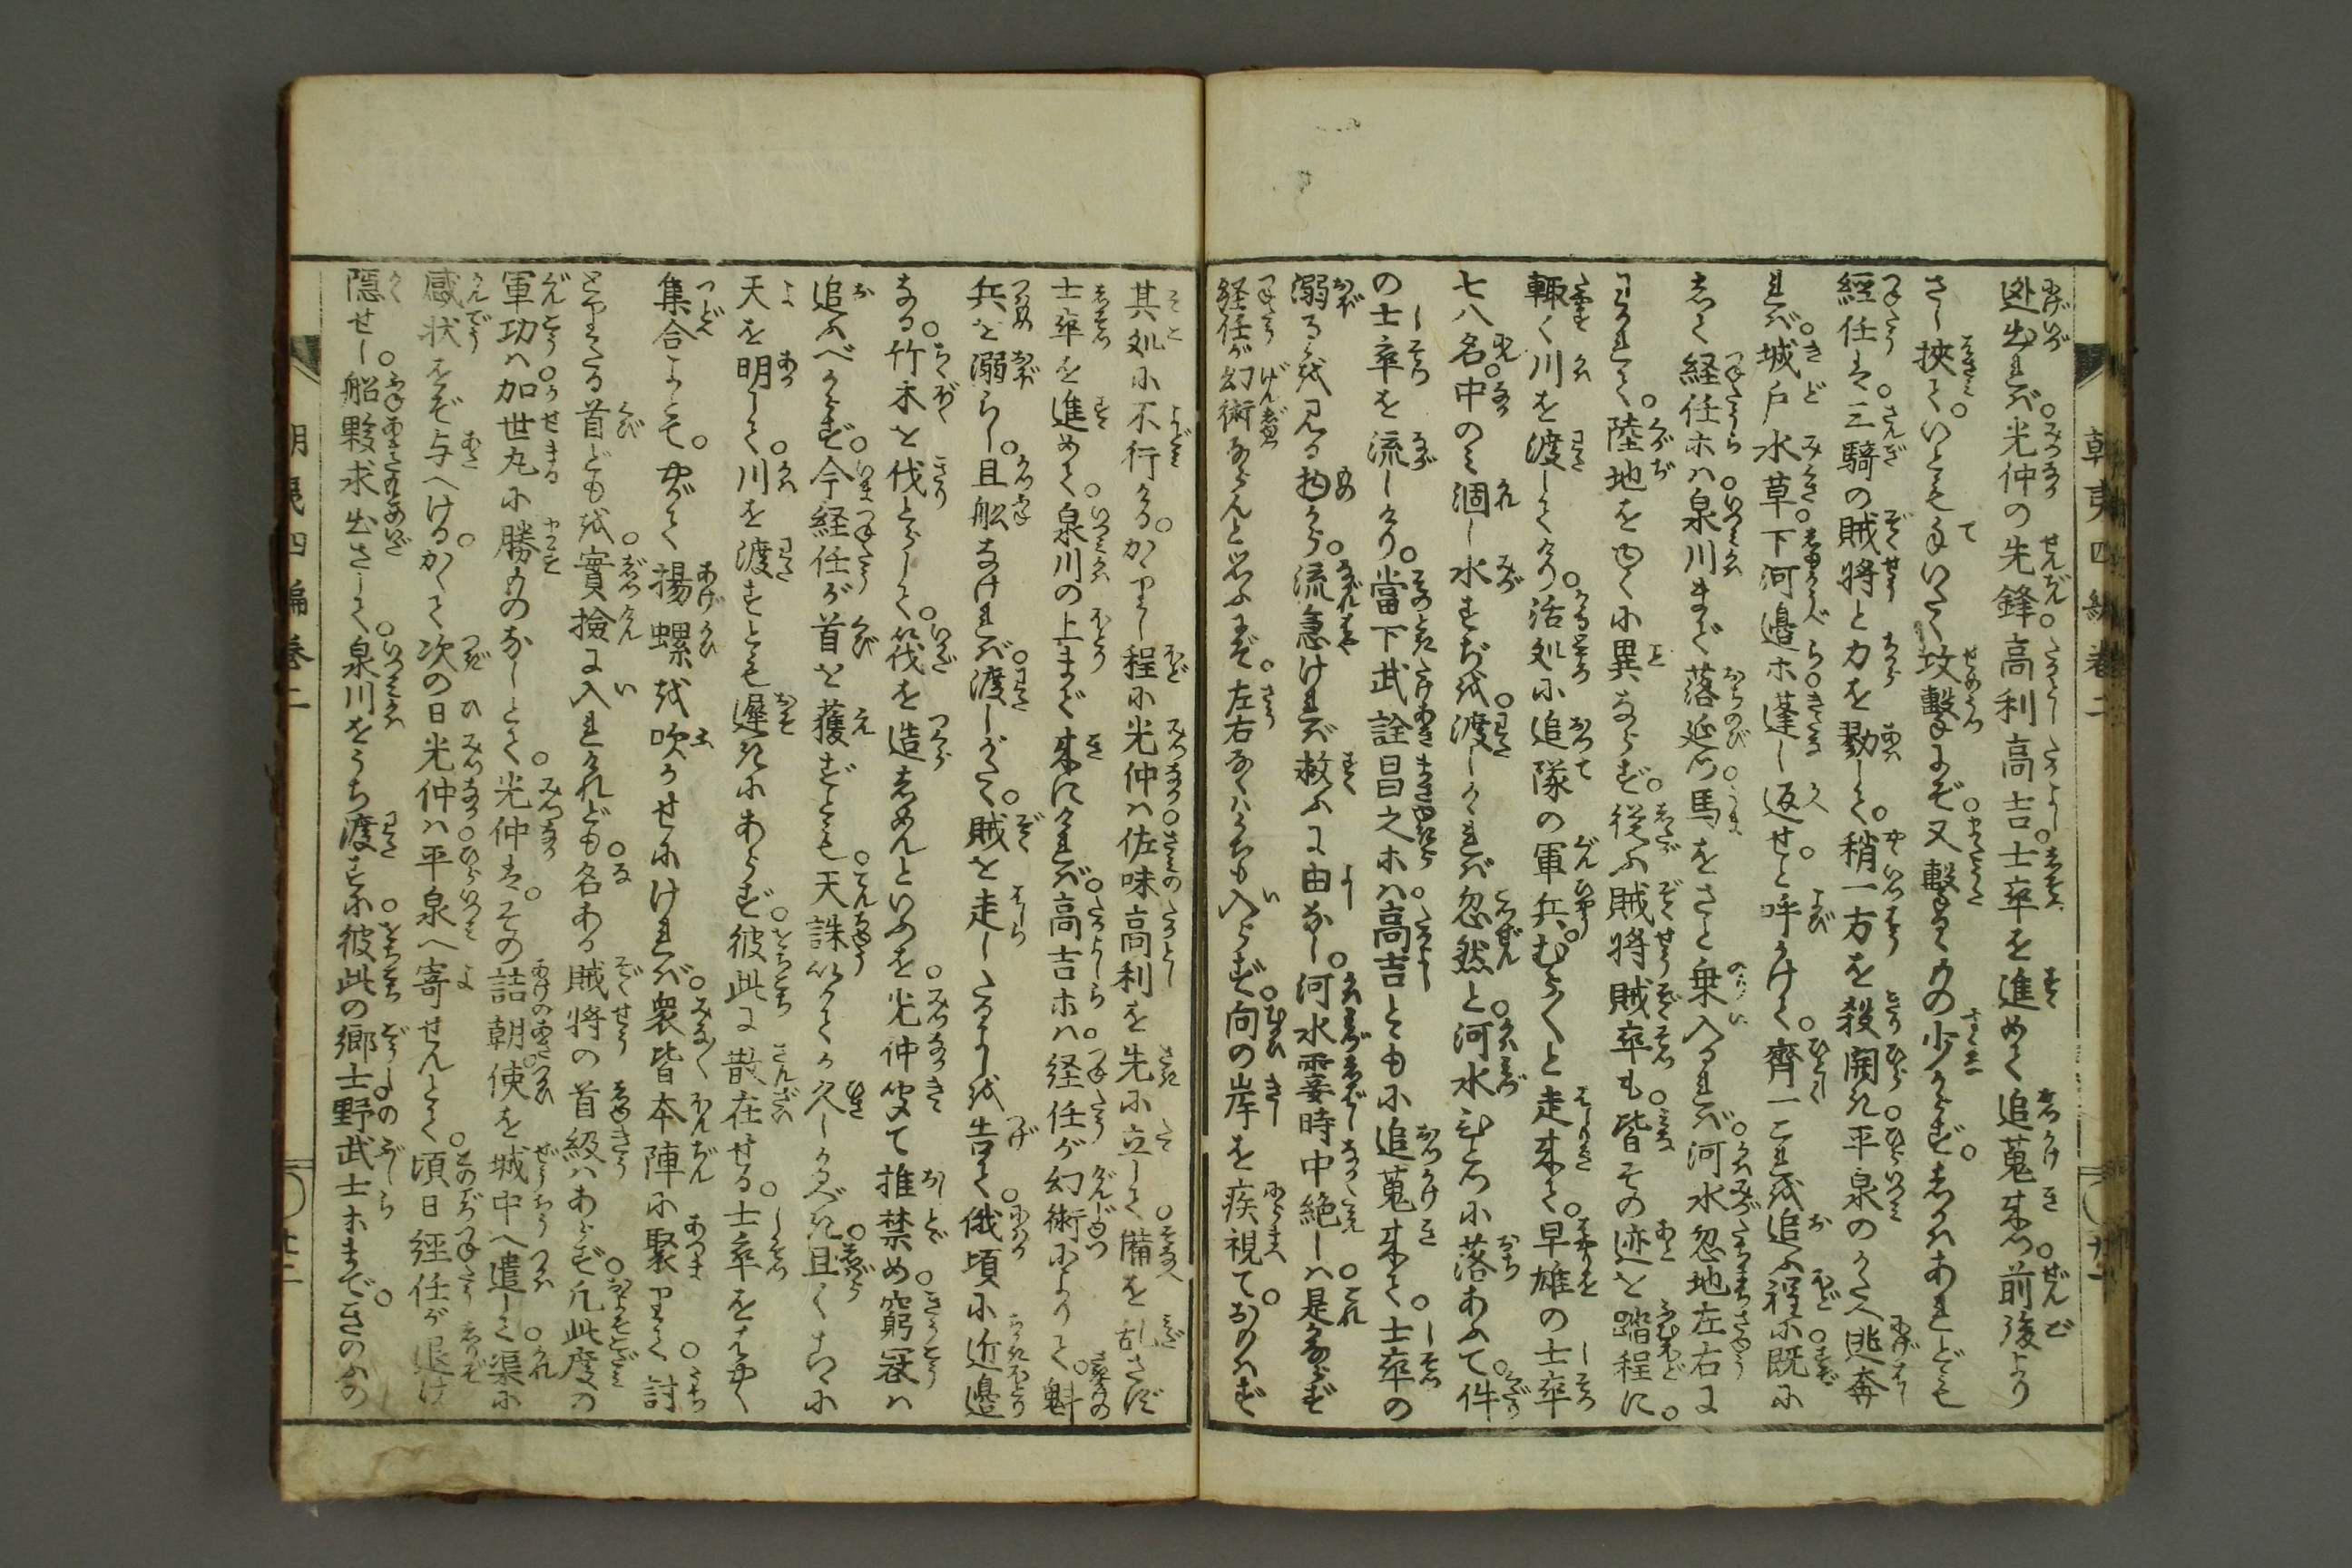 迯出れば。光仲の先鋒。高利高吉。士卒を進めて追蒐来つ。前後より
さし挾て。いとも手いたく攻撃にぞ。又撃るゝもの少からず。しかはあれども
經任は。三騎の賊將と力を勠して。稍一方を殺開き。平泉のかたへ逃奔
れば。城戸水草下河邊ホ。蓬し返せと呼かけて。齊一これを追ふ程に。既に
して経任ホハ。泉川まで落延つ。馬をさと乗入るれば。河水忽地左右に
わかれて。陸地をゆくに異ならず。従ふ賊將賊卒も。皆その迹を踏程に。
輙く川を渡してけり。浩処に追隊の軍兵。むら〳〵と走来て。早雄の士卒
七八名。中のミ涸し水すぢを。渡しかくれば忽然と。河水ひとつに落あふて。件
の士卒を流しけり。當下武詮昌之ホハ。高吉とともに追蒐来て。士卒の
溺るゝを見る物から。流急ければ救ふに由なし。河水霎時中絶しハ。是ならず
経任が幻術ならんと思ふにぞ。左右なくハうちも入らず。向の岸を疾視て。おもハず
其処に不行ける。かゝりし程に光仲ハ。佐味高利を先に立して。備を乱さず
士卒を進めて。泉川の上まで来にければ。高吉ホハ。経任が幻術によりて。魁
兵を溺らし。且舩なければ。渡しがたく。賊を走したるよしを告て。俄頃に近邊
なる。竹木を伐とらして。筏を造らしめんといふを。光仲聞て推禁め。窮冦ハ
追ふべからず。今経任が首を獲ずとも。天誅いかでか久しかるべき。且くこゝに
天を明して。川を渡すとも遅きにあらず。彼此に散在せる。士卒をはやく
集合よとて。やがて揚螺を吹かせにければ。衆皆本陣に聚りて。討
とりたる首どもを。實撿に入れけれども。名ある賊將の首級ハあらず。凡此度の
軍功ハ。加世丸に勝ものなしとて。光仲は。その詰朝。使を城中へ遣して。渠に
感状をぞ与へける。かくて次の日光仲ハ。平泉へ寄せんとて。頃日經任が退け
隠せし。船夥求出さして。泉川をうち渡すに。彼此の郷士野武士ホまで。きのふの
朝夷四編巻二
朝夷四編巻二
廿二